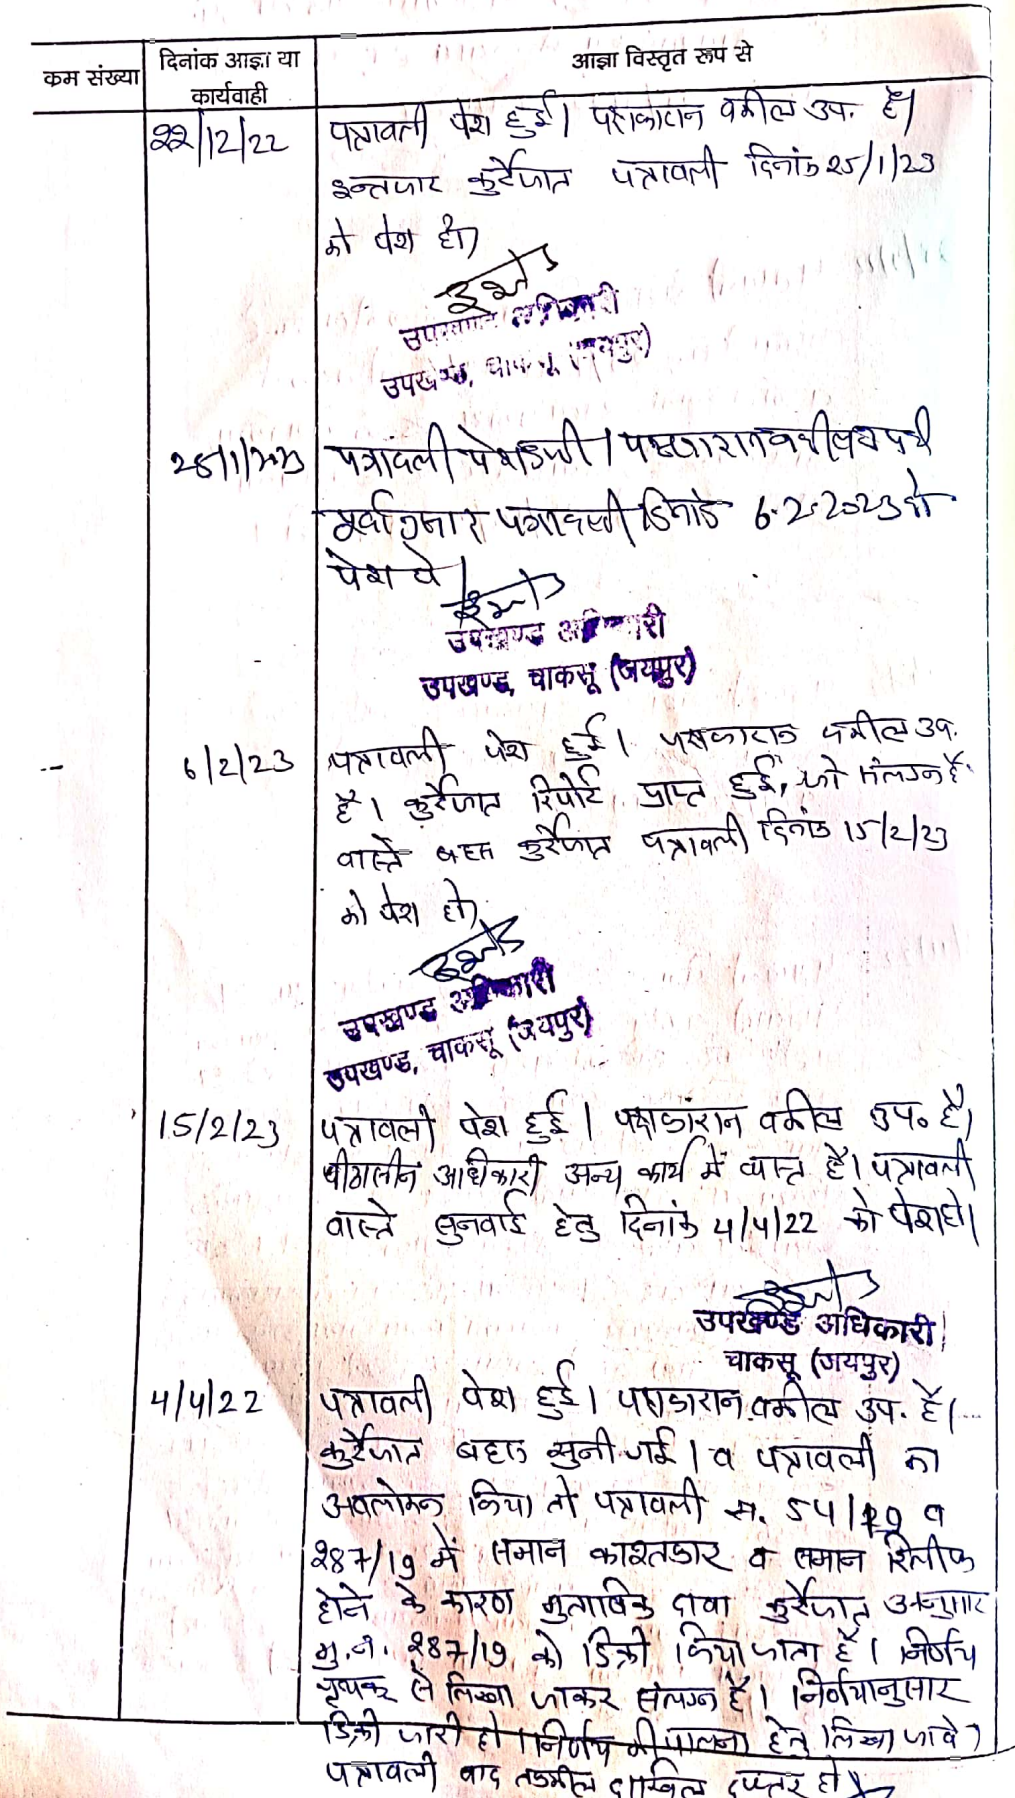 कम संख्या
दिनांक आज्ञा या
कार्यवाही
आज्ञा विस्तृत रूप से
22/12/22
पत्रावली पेश हुई। पक्षकारान वकील उप. है।
इन्तजार कुर्रेजात पत्रावली दिनांक 25/1/23
को पेश हो।
उपखण्ड अधिकारी
उपखण्ड, चाकसू (जयपुर)
पत्रावली पेश हुयी। पक्षकारान वकील
पूर्वानुसार पत्रावली दिनांक 6.2.2023 को
पेश हो।
उपखण्ड अधिकारी
उपखण्ड, चाकसू (जयपुर)
6/2/23
पत्रावली पेश हुई। पक्षकारान वकील उप.
है। कुर्रेजात रिपोर्ट प्राप्त हुई, जो संलग्न है
वास्ते बहस कुर्रेजात पत्रावली दिनांक 15/2/23
को पेश हो।
उपखण्ड अधिकारी
उपखण्ड, चाकसू (जयपुर)
15/2/23
पत्रावली पेश हुई। पक्षकारान वकील उप. है।
पीठासीन अधिकारी अन्य कार्य में व्यस्त है। पत्रावली
वास्ते सुनवाई हेतु दिनांक 4/4/22 को पेश हो।
उपखण्ड अधिकारी
चाकसू (जयपुर)
4/4/22
पत्रावली पेश हुई। पक्षकारान वकील उप. है।
कुर्रेजात बहस सुनी गई। व पत्रावली का
अवलोकन किया तो पत्रावली स. 54/19 व
287/19 में समान काश्तकार व समान रिलीफ
होने के कारण मुताबिक दावा कुर्रेजात अनुसार
मु.न. 287/19 को डिक्री किया जाता है। निर्णय
पृथक से लिखा जाकर संलग्न है। निर्णयानुसार
डिक्री जारी हो। निर्णय की पालना हेतु लिखा जावे।
पत्रावली बाद तकमील दाखिल दफ्तर हो।